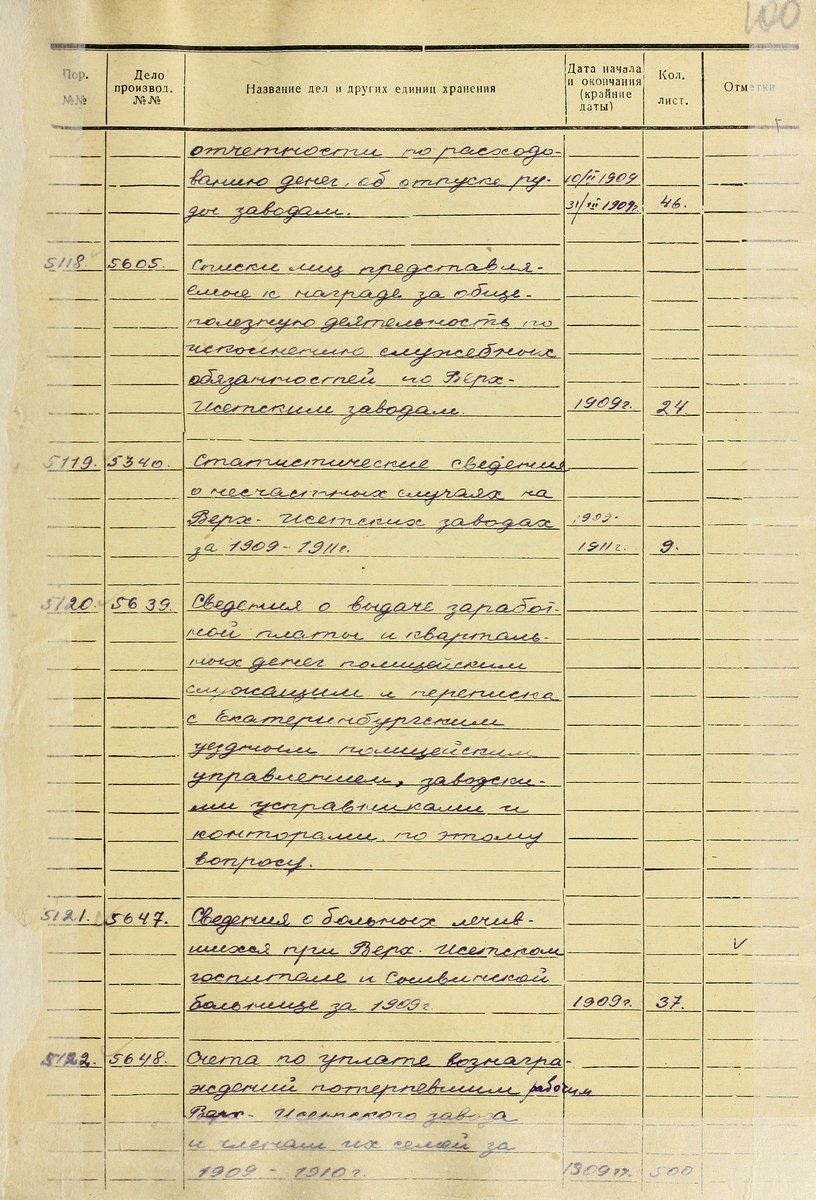 100
Пор. №№
Дело производ. №№
Название дел и других единиц хранения
Дата начала и окончания (крайние даты)
Кол. лист.
Отметки
отчетности по расходо-
ванию денег, об отпуске ру- 10/II 1909
ды заводам. 31/XII 1909г. 46.
5118. 5605. Списки лиц представля-
емые к награде за обще-
полезную деятельность по
исполнению служебных
обязанностей по Верх-
Исетским заводам. 1909г. 24.
5119. 5340. Статистические сведения
о несчастных случаях на
Верх-Исетских заводах 1909-
за 1909-1911г. 1911г. 9.
5120. 5639. Сведения о выдаче заработ-
ной платы и кварталь-
ных денег полицейским
служащим и переписка
с Екатеринбургским
уездным полицейским
управлением, заводски-
ми исправниками и
конторами по этому
вопросу.
5121. 5647. Сведения о больных лечив-
шихся при Верх-Исетском
госпитале и Сылвинской
больнице за 1909г. 1909г. 37.
5122. 5648. Счета по уплате вознагра-
ждений потерпевшим рабочим
Верх-Исетского завода
и членам их семей за
1909-1910г. 1909гг. 500